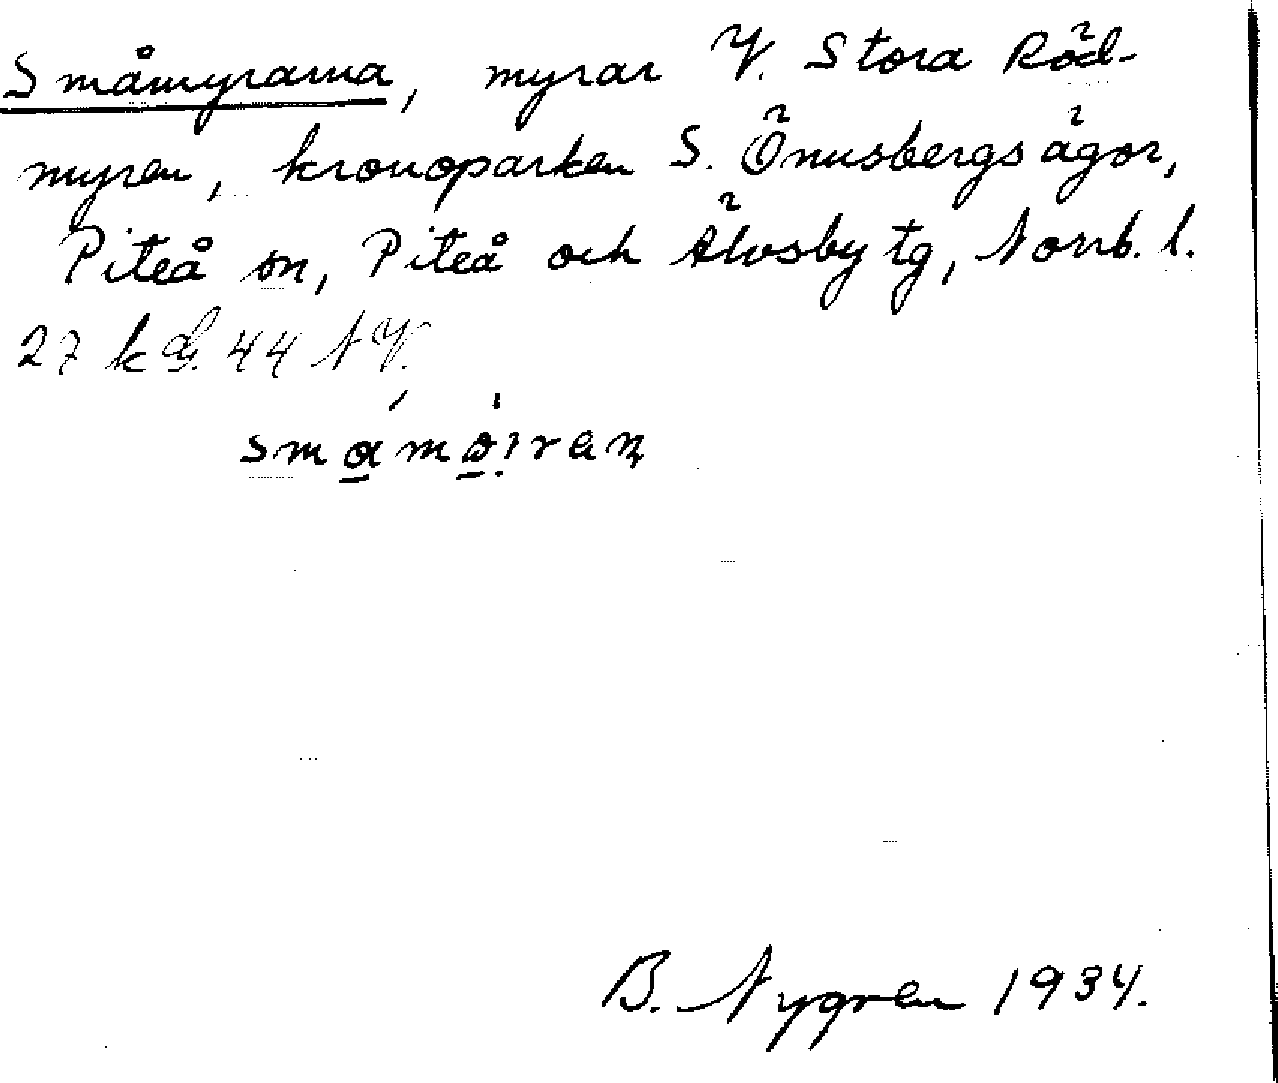 Småmyrarna, myrar V. Stora Röd-
myren, kronoparken S. Önusbergs ägor,
Piteå sn, Piteå och Älvsby tg, Norrb. l.
27 k G. 44 N V.
B. Nygren 1934.